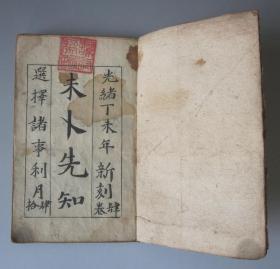 光緒丁未年新刻
卷肆
未卜先知
選擇諸事利月